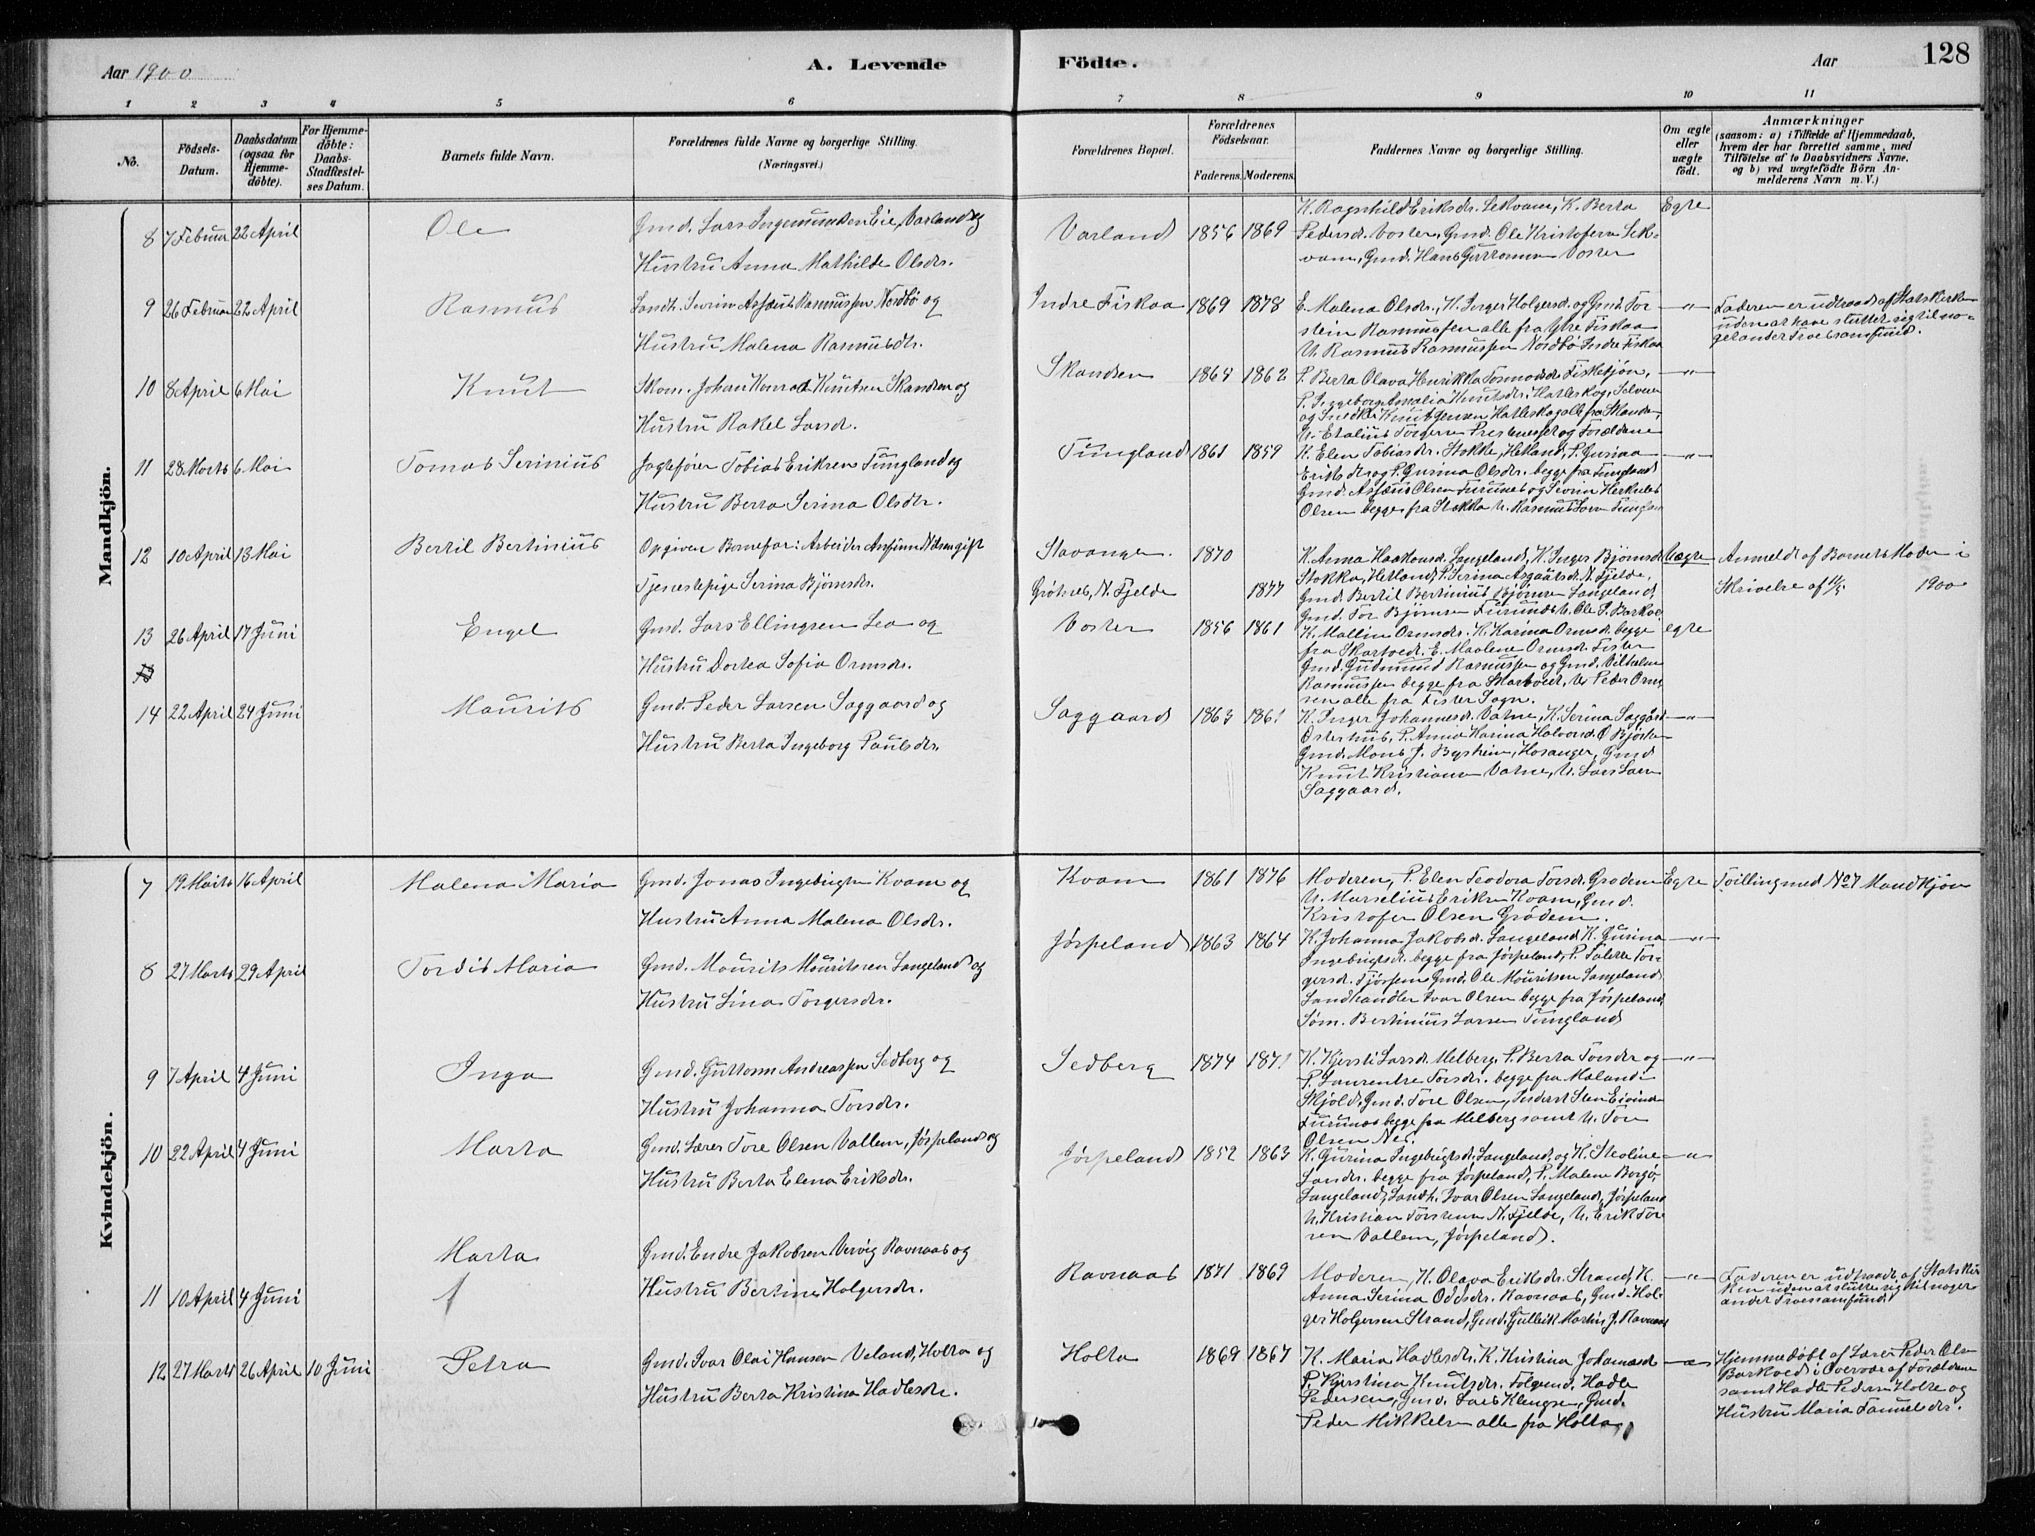 Aar 1900
A. Levende Födte.
Aar
128
1 2 3 4 5 6 7 8 9 10 11
No.
Födsels-Datum.
Daabsdatum (ogsaa for Hjemme-döbte).
For Hjemme-döbte: Daabs-Stadfæstel-ses Datum.
Barnets fulde Navn.
Forældrenes fulde Navne og borgerlige Stilling. (Næringsvei.)
Forældrenes Bopæl.
Forældrenes Födselsaar.
Faderens. Moderens.
Faddernes Navne og borgerlige Stilling.
Om ægte eller uægte födt.
Anmærkninger
(saasom: a) i Tilfælde af Hjemmedaab,
hvem der har forrettet samme, med
Tilföielse af to Daabsvidners Navne,
og b) ved uægtefödte Börn An-
melderens Navn m. V.)
Mandkjön.
8 7 Februar 22 April Ole Gmd. Lars Ingemundsen Eie, Varland og
Hustru Anna Mathilde Olsdr.
Varland 1856 1869
K. Ragnhild Eriksdr. Sekvam, K. Berta
Pedersd. Voster, Gmd. Ole Kristofersen Sek-
vam, Gmd. Hans Guttormsen Voster
Egte
9 26 Februar 22 April Rasmus Landh. Severin Asseus Rasmussen Nordbø og
Hustru Malena Rasmusdtr.
Indre Fiskaa 1869 1878
E. Malena Olsdr., K. Inger Holgersd. og Gmd. Tor-
stein Rasmussen alle fra Ytre Fiskaa
U. Rasmus Rasmussen Nordbø Indre Fiskaa
—"—
Faderen er udtraadt af Statskirken
uden at have sluttet sig til no-
get andet Troessamfund.
10 8 April 6 Mai Knut Skom. Johan Konrad Knutsen Skandsen og
Hustru Rakel Larsd.
Skandsen 1864 1862
P. Berta Olava Henrikka Tormodsdr. Fisketjøn,
P. Ingeborg Amalia Knutsdr. Hatleskog,
og Snedker Knut Jensen Hatleskog alle fra Skandsen,
—"—
11 28 Marts 6 Mai Tomas Serinius Jagtefører Tobias Eriksen Tungland og
Hustru Berta Serina Olsdtr.
Tungland 1861 1859
K. Elen Tobiasdr. Stokke, Hetland, P. Gurina
Eriksdr. og P. Gurina Olsdr. begge fra Tungland
Gmd. Asseus Olsen Furunes og Severin Herkules
Olsen begge fra Stokka U. Rasmus
—"—
12 10 April 13 Mai Bertil Bertinius Opgiven Barnefar: Arbeider Amund Adsen gift
Tjenestepige Serina Bjørnsdr.
Stavanger. 1870
Grøtnes, N. Fjelde 1877
K. Anna Haakonsd. Langeland, K. Inger Bjørnsdr
Stokka, Hetland, P. Serina Asgautsdr. N. Fjelde,
Gmd. Bertil Bertinius Bjørnsen Langeland
Gmd. Tor Bjørnsen Furunes U. Ole P. Barkve
Uægte
Anmeldt af Barnets Moder i
Skrivelse af 11/5 1900
13 26 April 17 Juni Engel Gmd. Lars Ellingsen Lea og
Hustru Dortea Sofia Ormsdr.
Voster 1856 1861
K. Mallin Ormsdr. K. Karina Ormsdr. begge
fra Skartveit. E. Maalene Ormsdr. Fister
Gmd. Gudmund Rasmussen og Gmd. Vilhelm
Rasmussen begge fra Skartveit, U. Peder Orm-
sen alle fra Fister Sogn.
egte
14 22 April 24 Juni Maurits Gmd. Peder Larsen Saggaard og
Hustru Berta Ingeborg Paulsdr.
Saggaard 1863 1861
K. Inger Johannesdr. Vatne, K. Serina Saggård
Østerhus, P. Anna Karina Halvorsd. Ø Bjørheim
Gmd. Mons J. Bysheim, Hosanger, Gmd
Knut Kristiansen Vatne, U. Lars Larsen
Saggaard.
—"—
Kvindekjön.
7 19 Marts 16 April Malena Maria Gmd. Jonas Ingebrigtsen Kvam og
Hustru Anna Malena Olsdr.
Kvam 1861 1876
Moderen, P. Elen Teodora Torsdr. Grødem
U. Marselius Eriksen Kvam, Gmd.
Kristofer Olsen Grødem.
Egte
Tvilling med No 7 Mandkjøn
8 27 Marts 29 April Tordis Maria Gmd. Maurits Mauritssen Langeland og
Hustru Lina Torgersdr.
Jørpeland 1863 1864
K. Johanna Jakobsdr. Langeland K. Gurina
Ingebrigtsdr. begge fra Jørpeland, P. Tolette Tor-
gersd. Tjøssem Gmd. Ole Mauritsen Langeland
Landhandler Ivar Olsen begge fra Jørpeland,
Søm. Bertinius Larsen Tungland
—"—
9 7 April 4 Juni Inga Gmd. Guttorm Andreassen Sedberg og
Hustru Johanna Torsdr.
Sedberg 1874 1871
K. Kjersti Larsd. Melberg, P. Berta Torsdr og
P. Laurentse Torsdr. begge fra Maland i
Skjold, Gmd. Tore Olsen, Inderst Sten Eivindsen
Furunes begge fra Melberg samt U. Tore
Olsen Nes.
—"—
10 22 April 4 Juni Marta Gmd. Lærer Tore Olsen Vallem, Jørpeland og
Hustru Berta Elena Eriksdr.
Jørpeland 1852 1863
K. Gurina Ingebrigtsd. Langeland, og K. Steoline
Larsdr. begge fra Jørpeland, P. Malene Borgø,
Langeland, Landh. Ivar Olsen Langeland, Jørpeland
U. Kristian Torstensen N. Fjelde, U. Erik Tore-
sen Vallem, Jørpeland.
—"—
11 10 April 4 Juni Marta Gmd. Endre Jakobsen Vervig Ravnaas og
Hustru Bertine Holgersdr.
Ravnaas 1871 1869
Moderen, K. Olava Eriksdr. Strand, K.
Anna Serina Oddsdr. Ravnaas, Gmd. Hol-
ger Holgersen Strand, Gmd. Gullik Martin J. Ravnaas
—"—
Faderen er udtraadt af Statskir-
ken uden at slutte sig til noget
andet Troessamfund
12 27 Marts 26 April 10 Juni Petra Gmd. Ivar Olai Hansen Veland, Holta og
Hustru Berta Kristina Hadlesdr.
Holta 1869 1867
K. Maria Hadlesdr. K. Kristina Johannesd
P. Kjerstina Knutsdr. Folgemd. Hadle
Pedersen, Gmd. Lars Klengsen, Gmd.
Peder Mikkelsen alle fra Holta
—"—
Hjemmedøbt af Lærer Peder Olsen
Barkved i Overvær af Forældrene
samt Hadle Pedersen Holte og
Hustru Maria Samuelsdr.